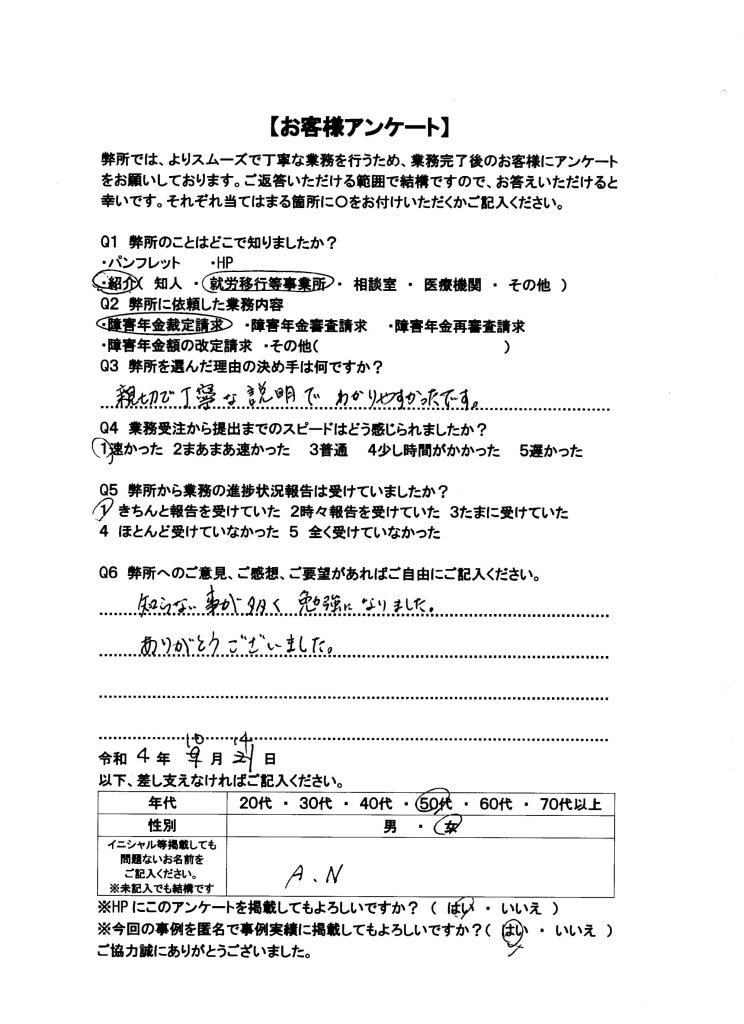 【お客様アンケート】
弊所では、よりスムーズで丁寧な業務を行うため、業務完了後のお客様にアンケート
をお願いしております。ご返答いただける範囲で結構ですので、お答えいただけると
幸いです。それぞれ当てはまる箇所に〇をお付けいただくかご記入ください。
Q1 弊所のことはどこで知りましたか？
・パンフレット ・HP
・紹介( 知人 ・ 就労移行等事業所 ・ 相談室 ・ 医療機関 ・ その他 )
Q2 弊所に依頼した業務内容
・障害年金裁定請求 ・障害年金審査請求 ・障害年金再審査請求
・障害年金額の改定請求 ・その他( )
Q3 弊所を選んだ理由の決め手は何ですか？
親切で丁寧な説明で わかりやすかったです。
Q4 業務受注から提出までのスピードはどう感じられましたか？
1速かった 2まあまあ速かった 3普通 4少し時間がかかった 5遅かった
Q5 弊所から業務の進捗状況報告は受けていましたか？
1 きちんと報告を受けていた 2時々報告を受けていた 3たまに受けていた
4 ほとんど受けていなかった 5 全く受けていなかった
Q6 弊所へのご意見、ご感想、ご要望があればご自由にご記入ください。
知らない事が多く 勉強になりました。
ありがとうございました。
10 14
令和 4 年 9 月 21 日
以下、差し支えなければご記入ください。
年代 20代 ・ 30代 ・ 40代 ・ 50代 ・ 60代 ・ 70代以上
性別 男 ・ 女
イニシャル等掲載しても
問題ないお名前を
ご記入ください。
※未記入でも結構です
A.N
※HPにこのアンケートを掲載してもよろしいですか？ ( はい ・ いいえ )
※今回の事例を匿名で事例実績に掲載してもよろしいですか？( はい ・ いいえ )
ご協力誠にありがとうございました。